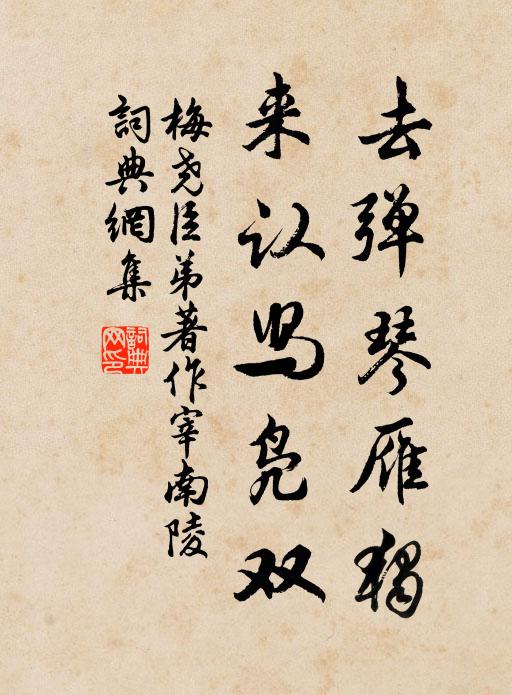 去弹琴雁獨
来认舄凫双
梅尧臣弟著作宰南陵
詞典網集
詞典网印